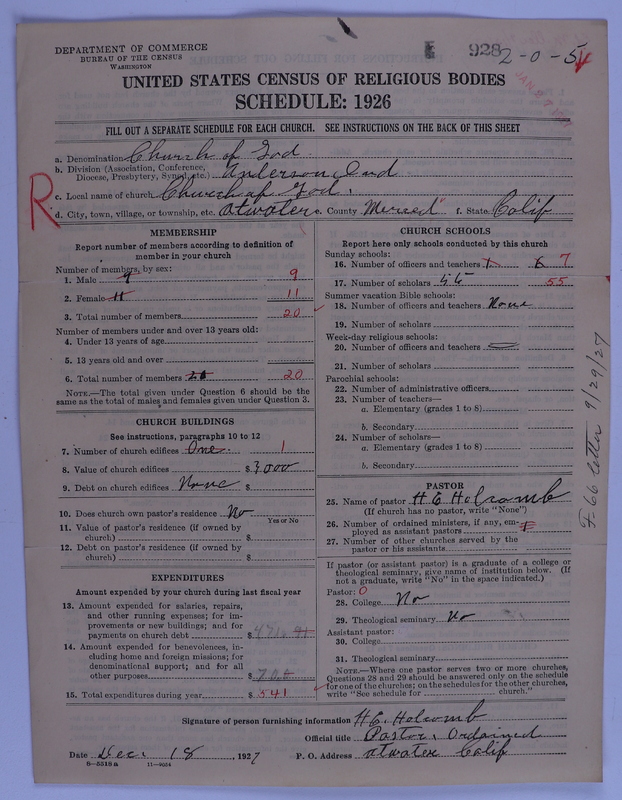 DEPARTMENT OF COMMERCE
BUREAU OF THE CENSUS
WASHINGTON
928 2-0-5
UNITED STATES CENSUS OF RELIGIOUS BODIES
SCHEDULE: 1926
FILL OUT A SEPARATE SCHEDULE FOR EACH CHURCH. SEE INSTRUCTIONS ON THE BACK OF THIS SHEET
R
a. Denomination Church of God
b. Division (Association, Conference, Diocese, Presbytery, Synod, etc.) Anderson, Ind
c. Local name of church Church of God.
d. City, town, village, or township, etc. Atwater e. County Merced f. State Calif
MEMBERSHIP
Report number of members according to definition of
member in your church
Number of members, by sex:
1. Male 9 9
2. Female 11 11
3. Total number of members 20
Number of members under and over 13 years old:
4. Under 13 years of age
5. 13 years old and over
6. Total number of members 20 20
NOTE.—The total given under Question 6 should be the
same as the total of males and females given under Question 3.
CHURCH BUILDINGS
See instructions, paragraphs 10 to 12
7. Number of church edifices One. 1
8. Value of church edifices $ 3,000
9. Debt on church edifices None $
10. Does church own pastor's residence? No
Yes or No
11. Value of pastor's residence (if owned by
church) $
12. Debt on pastor's residence (if owned by
church) $
EXPENDITURES
Amount expended by your church during last fiscal year
13. Amount expended for salaries, repairs,
and other running expenses; for im-
provements or new buildings; and for
payments on church debt $
14. Amount expended for benevolences, in-
cluding home and foreign missions; for
denominational support; and for all
other purposes $
15. Total expenditures during year $ 541
CHURCH SCHOOLS
Report here only schools conducted by this church
Sunday schools:
16. Number of officers and teachers 6 7
17. Number of scholars 55
Summer vacation Bible schools:
18. Number of officers and teachers None
19. Number of scholars
Week-day religious schools:
20. Number of officers and teachers
21. Number of scholars
Parochial schools:
22. Number of administrative officers
23. Number of teachers—
a. Elementary (grades 1 to 8)
b. Secondary
24. Number of scholars—
a. Elementary (grades 1 to 8)
b. Secondary
PASTOR
25. Name of pastor H E Holcomb
(If church has no pastor, write "None")
26. Number of ordained ministers, if any, em-
ployed as assistant pastors
27. Number of other churches served by the
pastor or his assistants
If pastor (or assistant pastor) is a graduate of a college or
theological seminary, give name of institution below. (If
not a graduate, write "No" in the space indicated.)
Pastor: 0
28. College No
29. Theological seminary No
Assistant pastor:
30. College
31. Theological seminary
NOTE.—Where one pastor serves two or more churches,
Questions 28 and 29 should be answered only on the schedule
for one of the churches; on the schedules for the other churches,
write "See schedule for church."
F-66 letter 9/29/27
Signature of person furnishing information H.E. Holcomb
Official title Pastor, Ordained
Date Dec. 18, 1927 P. O. Address Atwater Calif
8-5518a 11-9054